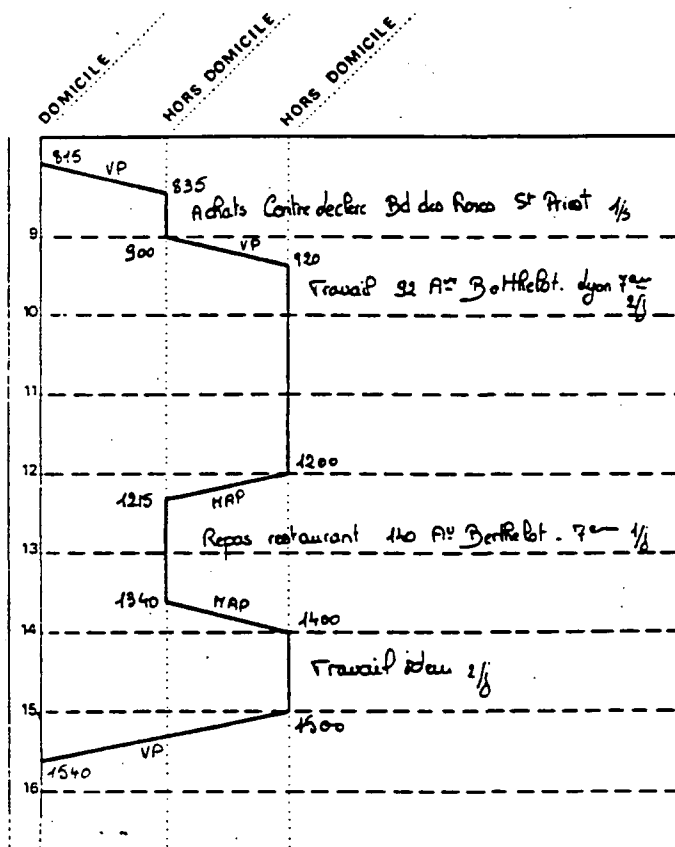 DOMICILE
HORS DOMICILE
HORS DOMICILE
815
VP
835
Achats Centre Leclerc Bd des Roses St Priest 1/s
9
900
VP
920
Travail 92 Ave Berthelot. Lyon 7em
2/j
10
11
12
1200
1215
MAP
Repas restaurant 140 Av Berthelot. 7em 1/j
13
1340
MAP
1400
14
Travail idem 2/j
15
1500
VP
1540
16